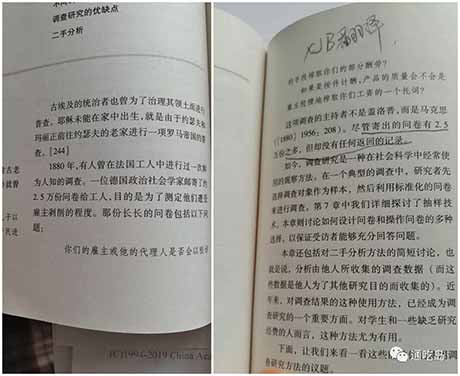 调查研究的优缺点
二手分析
古埃及的统治者也曾为了治理其领土而进行
普查。耶稣未能在家中出生，就是由于约瑟夫和
玛丽正前往约瑟夫的老家进行一项罗马帝国的普
查。[244]
1880年，有人曾在法国工人中进行过一次鲜
为人知的调查。一位德国政治社会学家邮寄了约
2.5万份问卷给工人，目的是为了测定他们遭受
雇主剥削的程度。那份长长的问卷包括以下问
题：
你们的雇主或他的代理人是否会以
(C)1994-2019 China Aca
的手段榨取你们的部分酬劳？
如果是按件计酬，产品的质量会不会是
雇主狡猾地榨取你们工资的一个托词？
这项调查的主持者不是盖洛普，而是马克思
（[1880] 1956：208）。尽管寄出的问卷有2.5
万份之多，但却没有任何返回的记录。
如今，调查研究是一种在社会科学中经常使
用的观察方法。在一个典型的调查中，研究者先
选择调查对象作为样本，然后利用标准化的问卷
来进行调查。第7章中我们详细探讨了抽样技
术。本章则讨论如何设计问卷和操作问卷的多种
选择，以保证受访者能够充分回答问题。
本章还包括对二手分析方法的简短讨论，也
就是说，分析由他人所收集的调查数据（而这
些数据是他人为了其他研究目的而收集的）。近
年来，对调查结果的这种使用方法，已经成为调
查研究的一个重要方面。对学生和一些缺乏研究
经费的人而言，这种方法尤为有用。
下面，让我们来看一看这些
卷研究方法的议题。
通吃岛